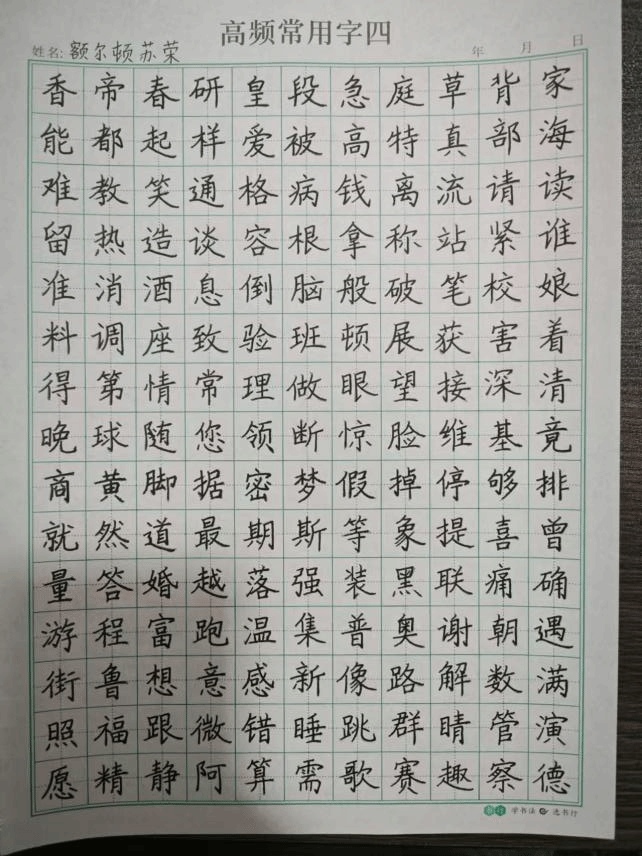 高频常用字四
姓名: 额尔顿苏荣 年 月 日
香帝春研皇段急庭草背家
能都起样爱被高特真部海
难教笑通格病钱离流请读
留热造谈容根拿称站紧谁
准消酒息倒脑般破笔校娘
料调座致验班顿展获害着
得第情常理做眼望接深清
晚球随您领断惊脸维基竟
商黄脚据密梦假掉停够排
就然道最期斯等象提喜曾
量答婚越落强装黑联痛确
游程富跑温集普奥谢朝遇
街鲁想意感新像路解数满
照福跟微错睡跳群晴管演
愿精静阿算需歌赛趣察德
学书法 选书行